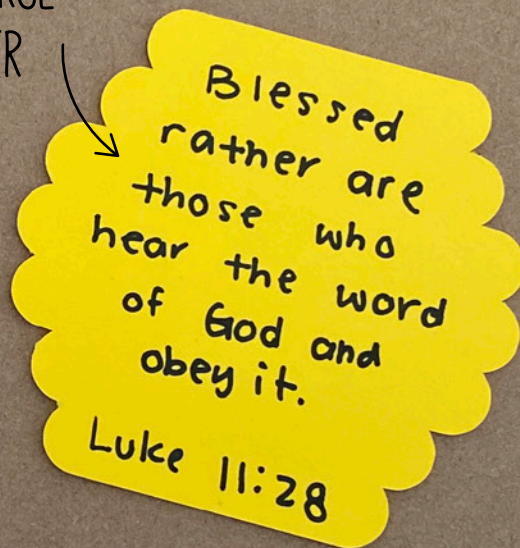 R
Blessed
rather are
those who
hear the word
of God and
obey it.
Luke 11:28